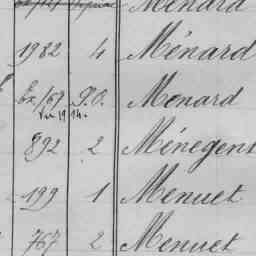 Ménard
1982 4 Ménard
bx/69 P.O. Menard
Vu 19 14.
892 2 Ménegent
199 1 Menuet
767 2 Menuet